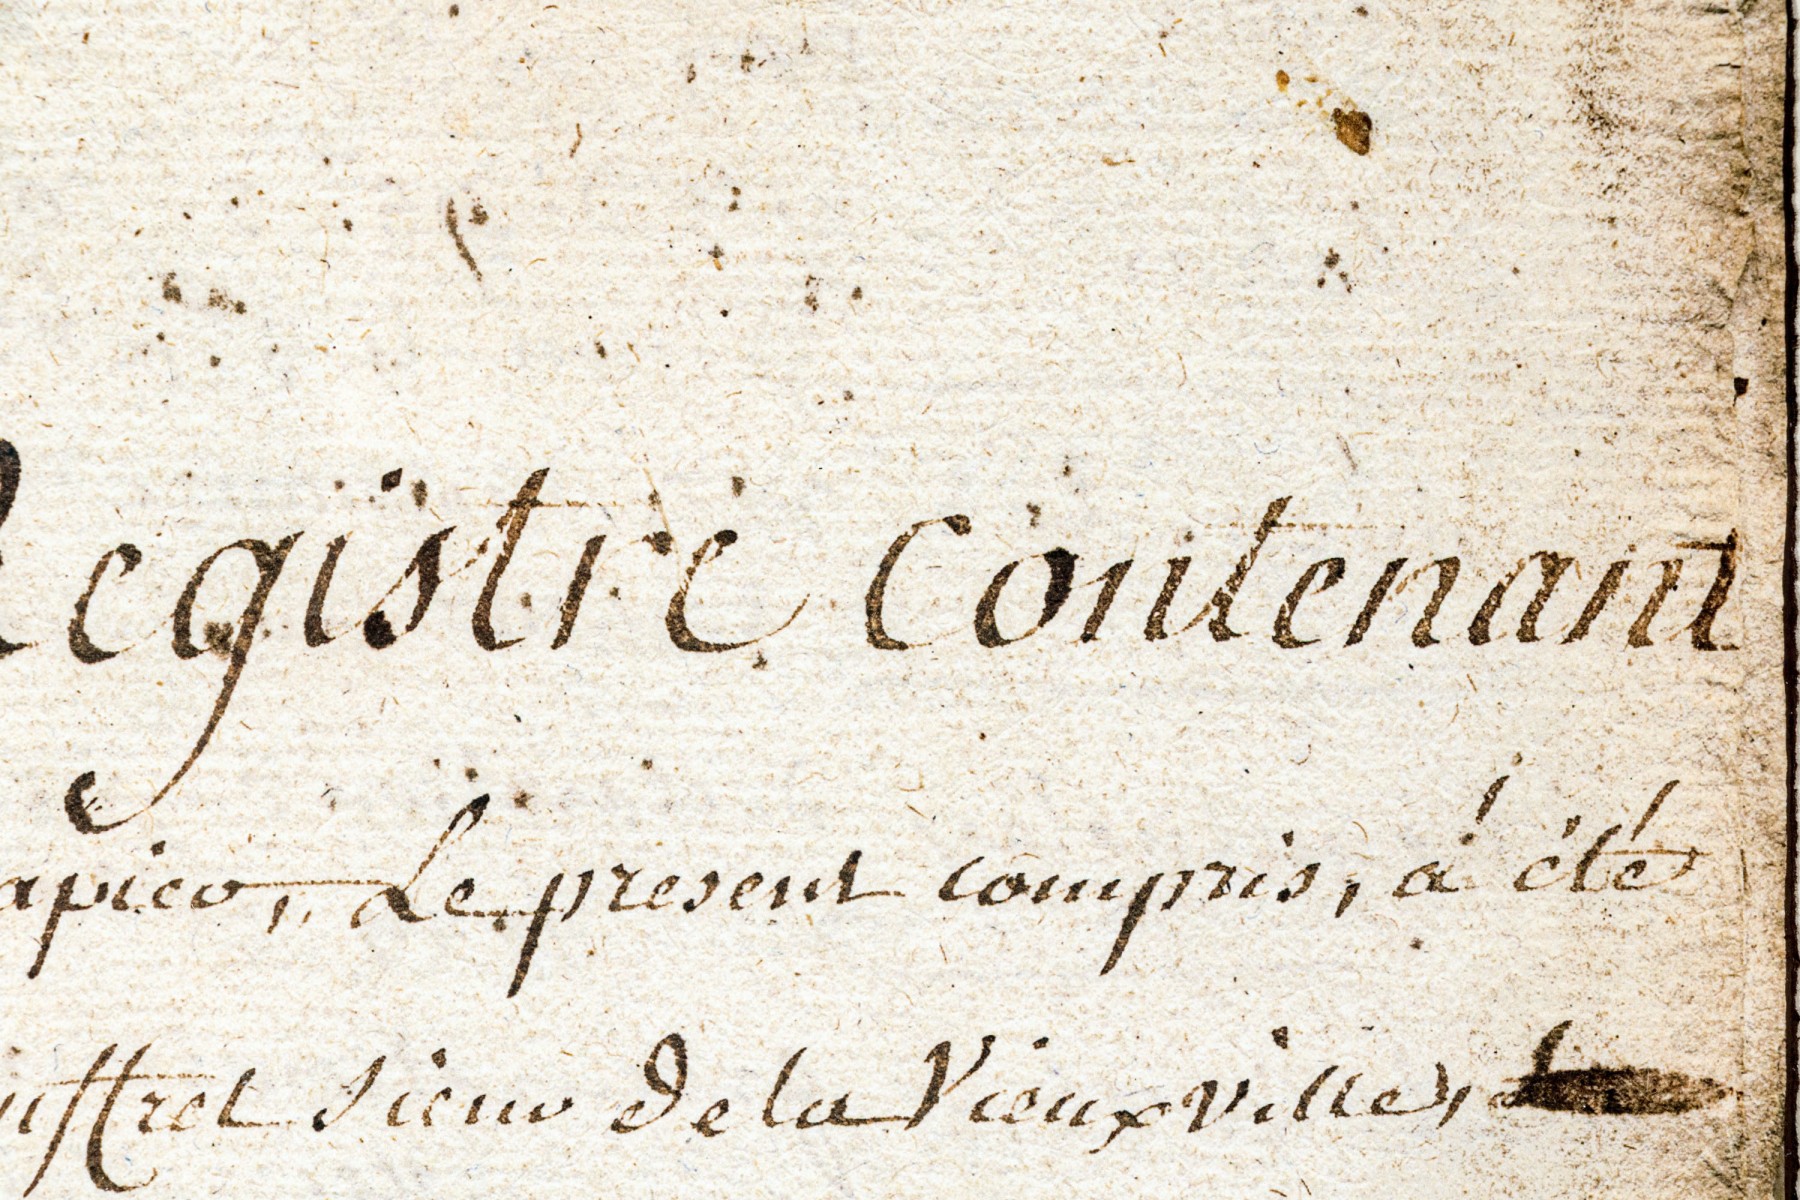 Registre contenant
Le present compris, a été
sieur de la Vieuxville,